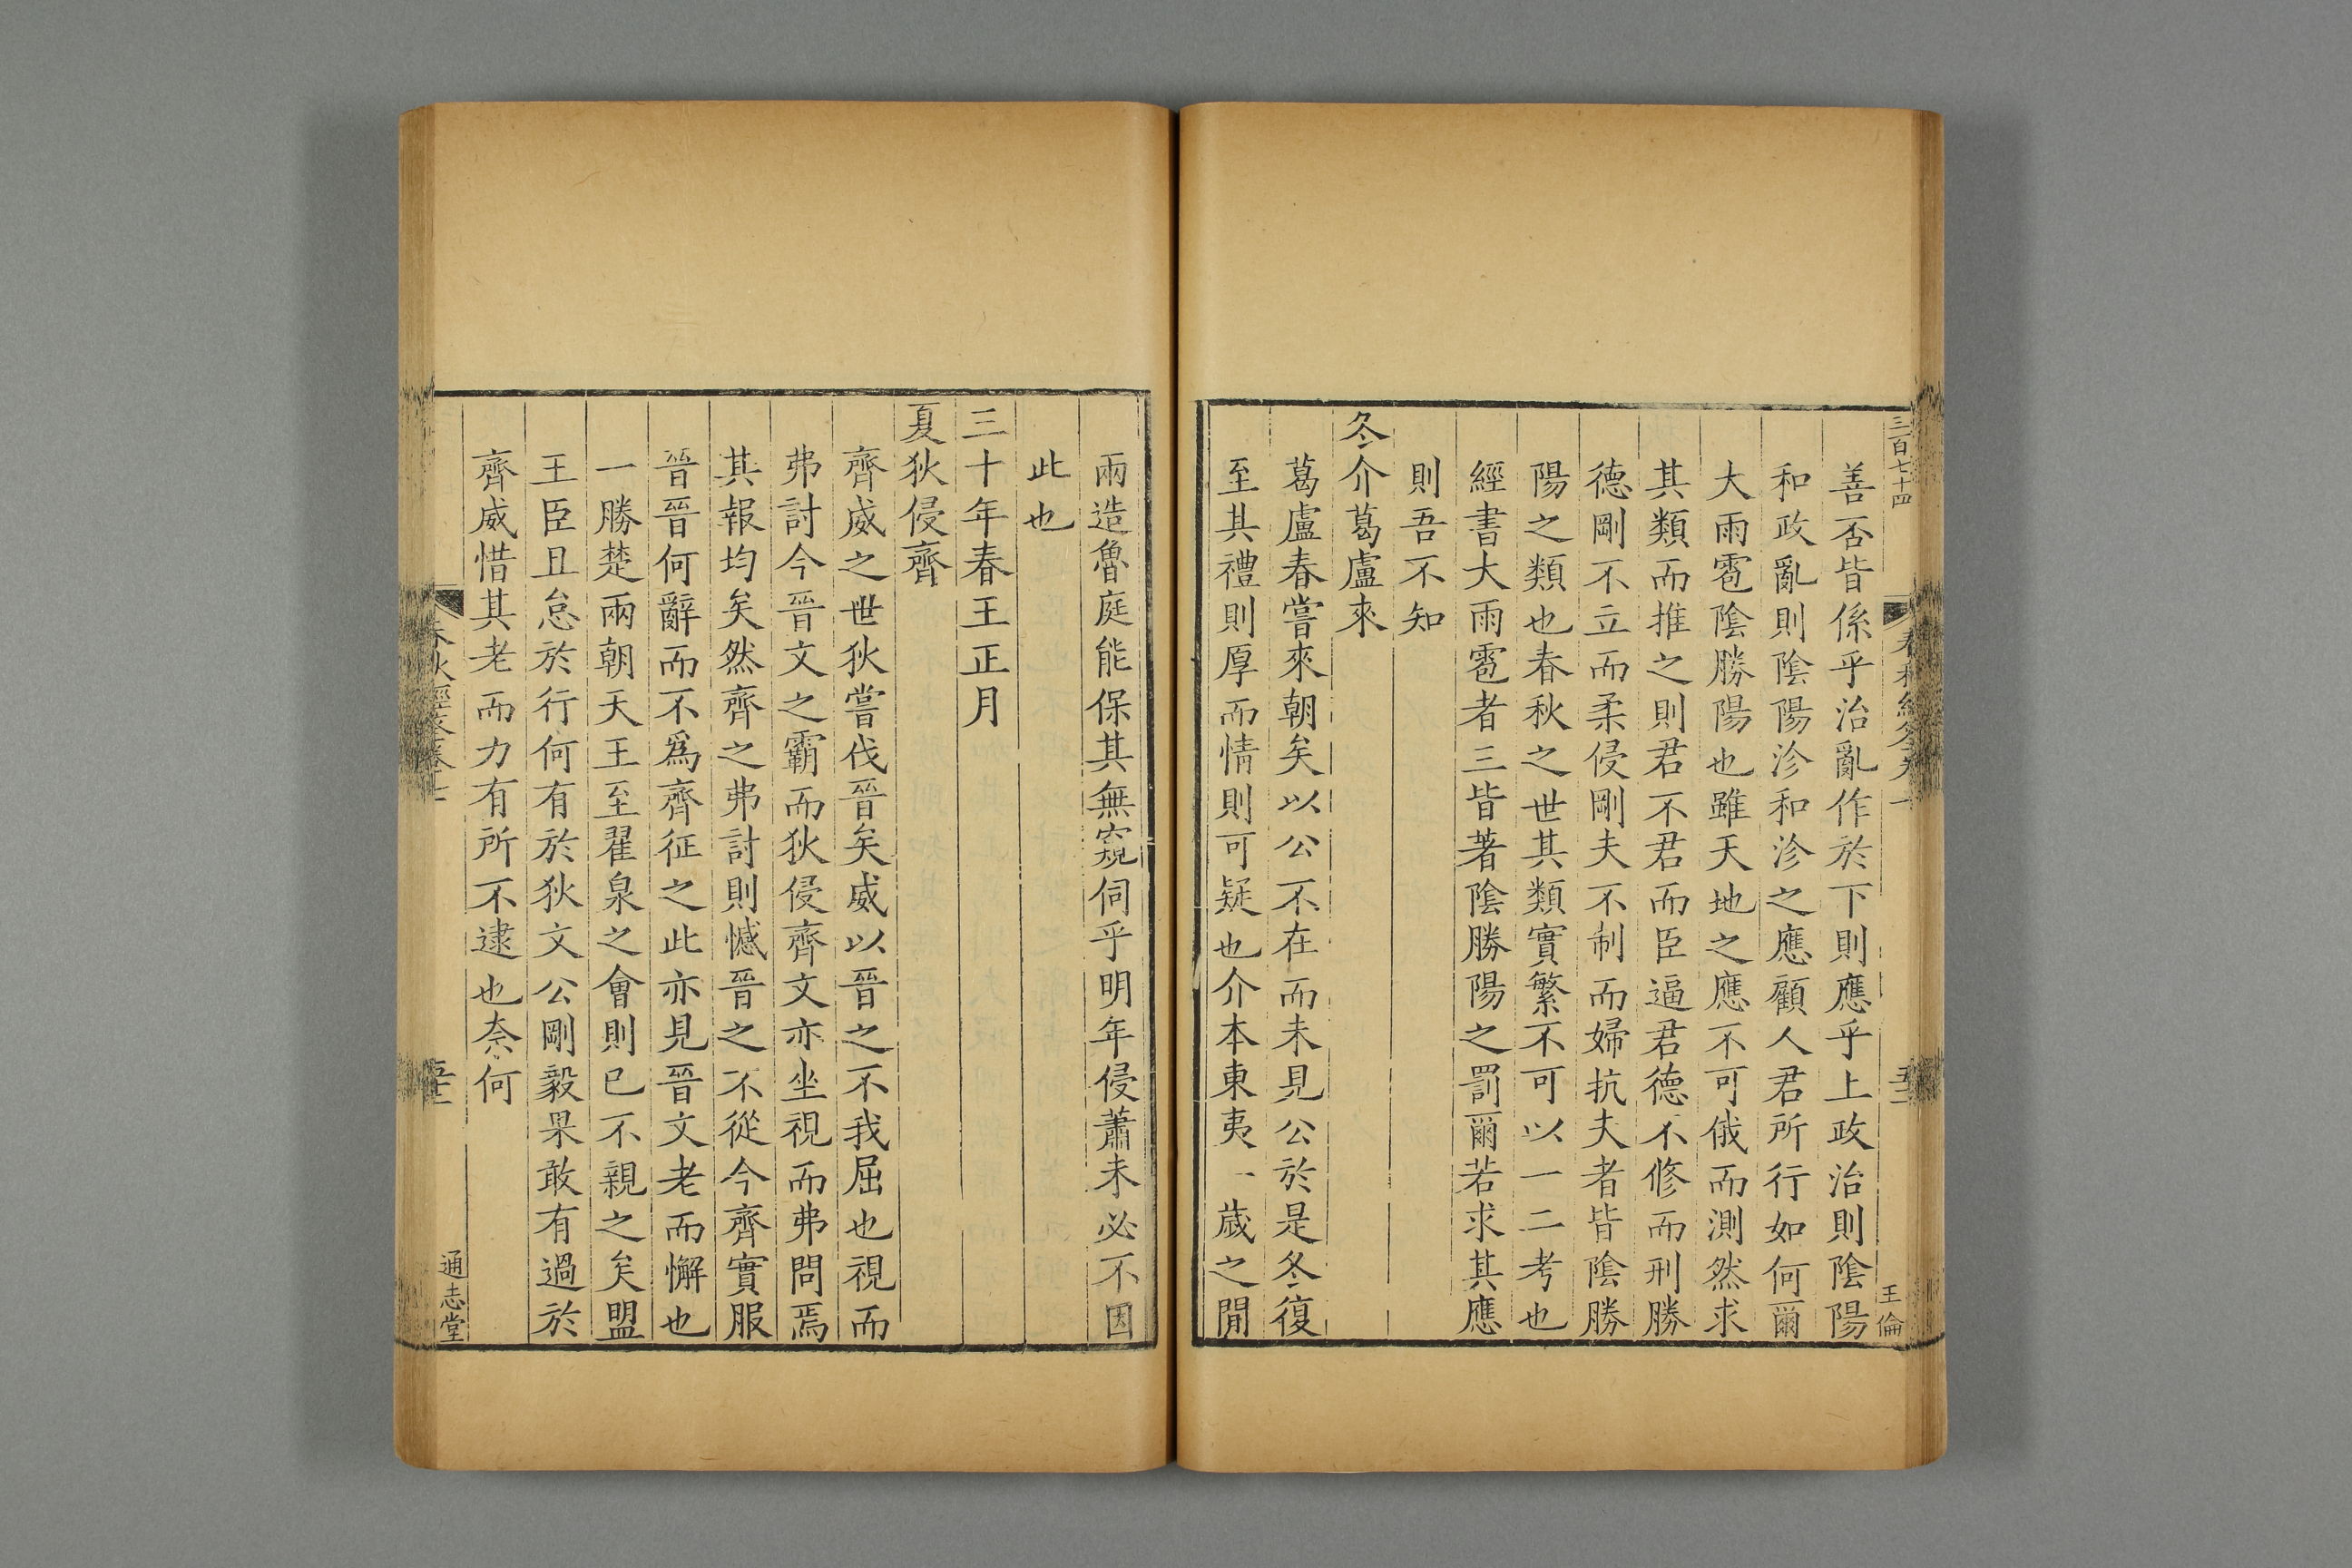 三百七十四
王倫
善否皆係乎治亂作於下則應乎上政治則陰陽
和政亂則陰陽沴和沴之應顧人君所行如何爾
大雨雹陰勝陽也雖天地之應不可俄而測然求
其類而推之則君不君而臣逼君德不修而刑勝
德剛不立而柔侵剛夫不制而婦抗夫者皆陰勝
陽之類也春秋之世其類實繁不可以一二考也
經書大雨雹者三皆著陰勝陽之罰爾若求其應
則吾不知
冬介葛盧來
葛盧春嘗來朝矣以公不在而未見公於是冬復
至其禮則厚而情則可疑也介本東夷一歲之閒
兩造魯庭能保其無窺伺乎明年侵蕭未必不因
此也
三十年春王正月
夏狄侵齊
齊威之世狄嘗伐晉矣威以晉之不我屈也視而
弗討今晉文之霸而狄侵齊文亦坐視而弗問焉
其報均矣然齊之弗討則憾晉之不從今齊實服
晉晉何辭而不為齊征之此亦見晉文老而懈也
一勝楚兩朝天王至翟泉之會則已不親之矣盟
王臣且怠於行何有於狄文公剛毅果敢有過於
齊威惜其老而力有所不逮也奈何
通志堂